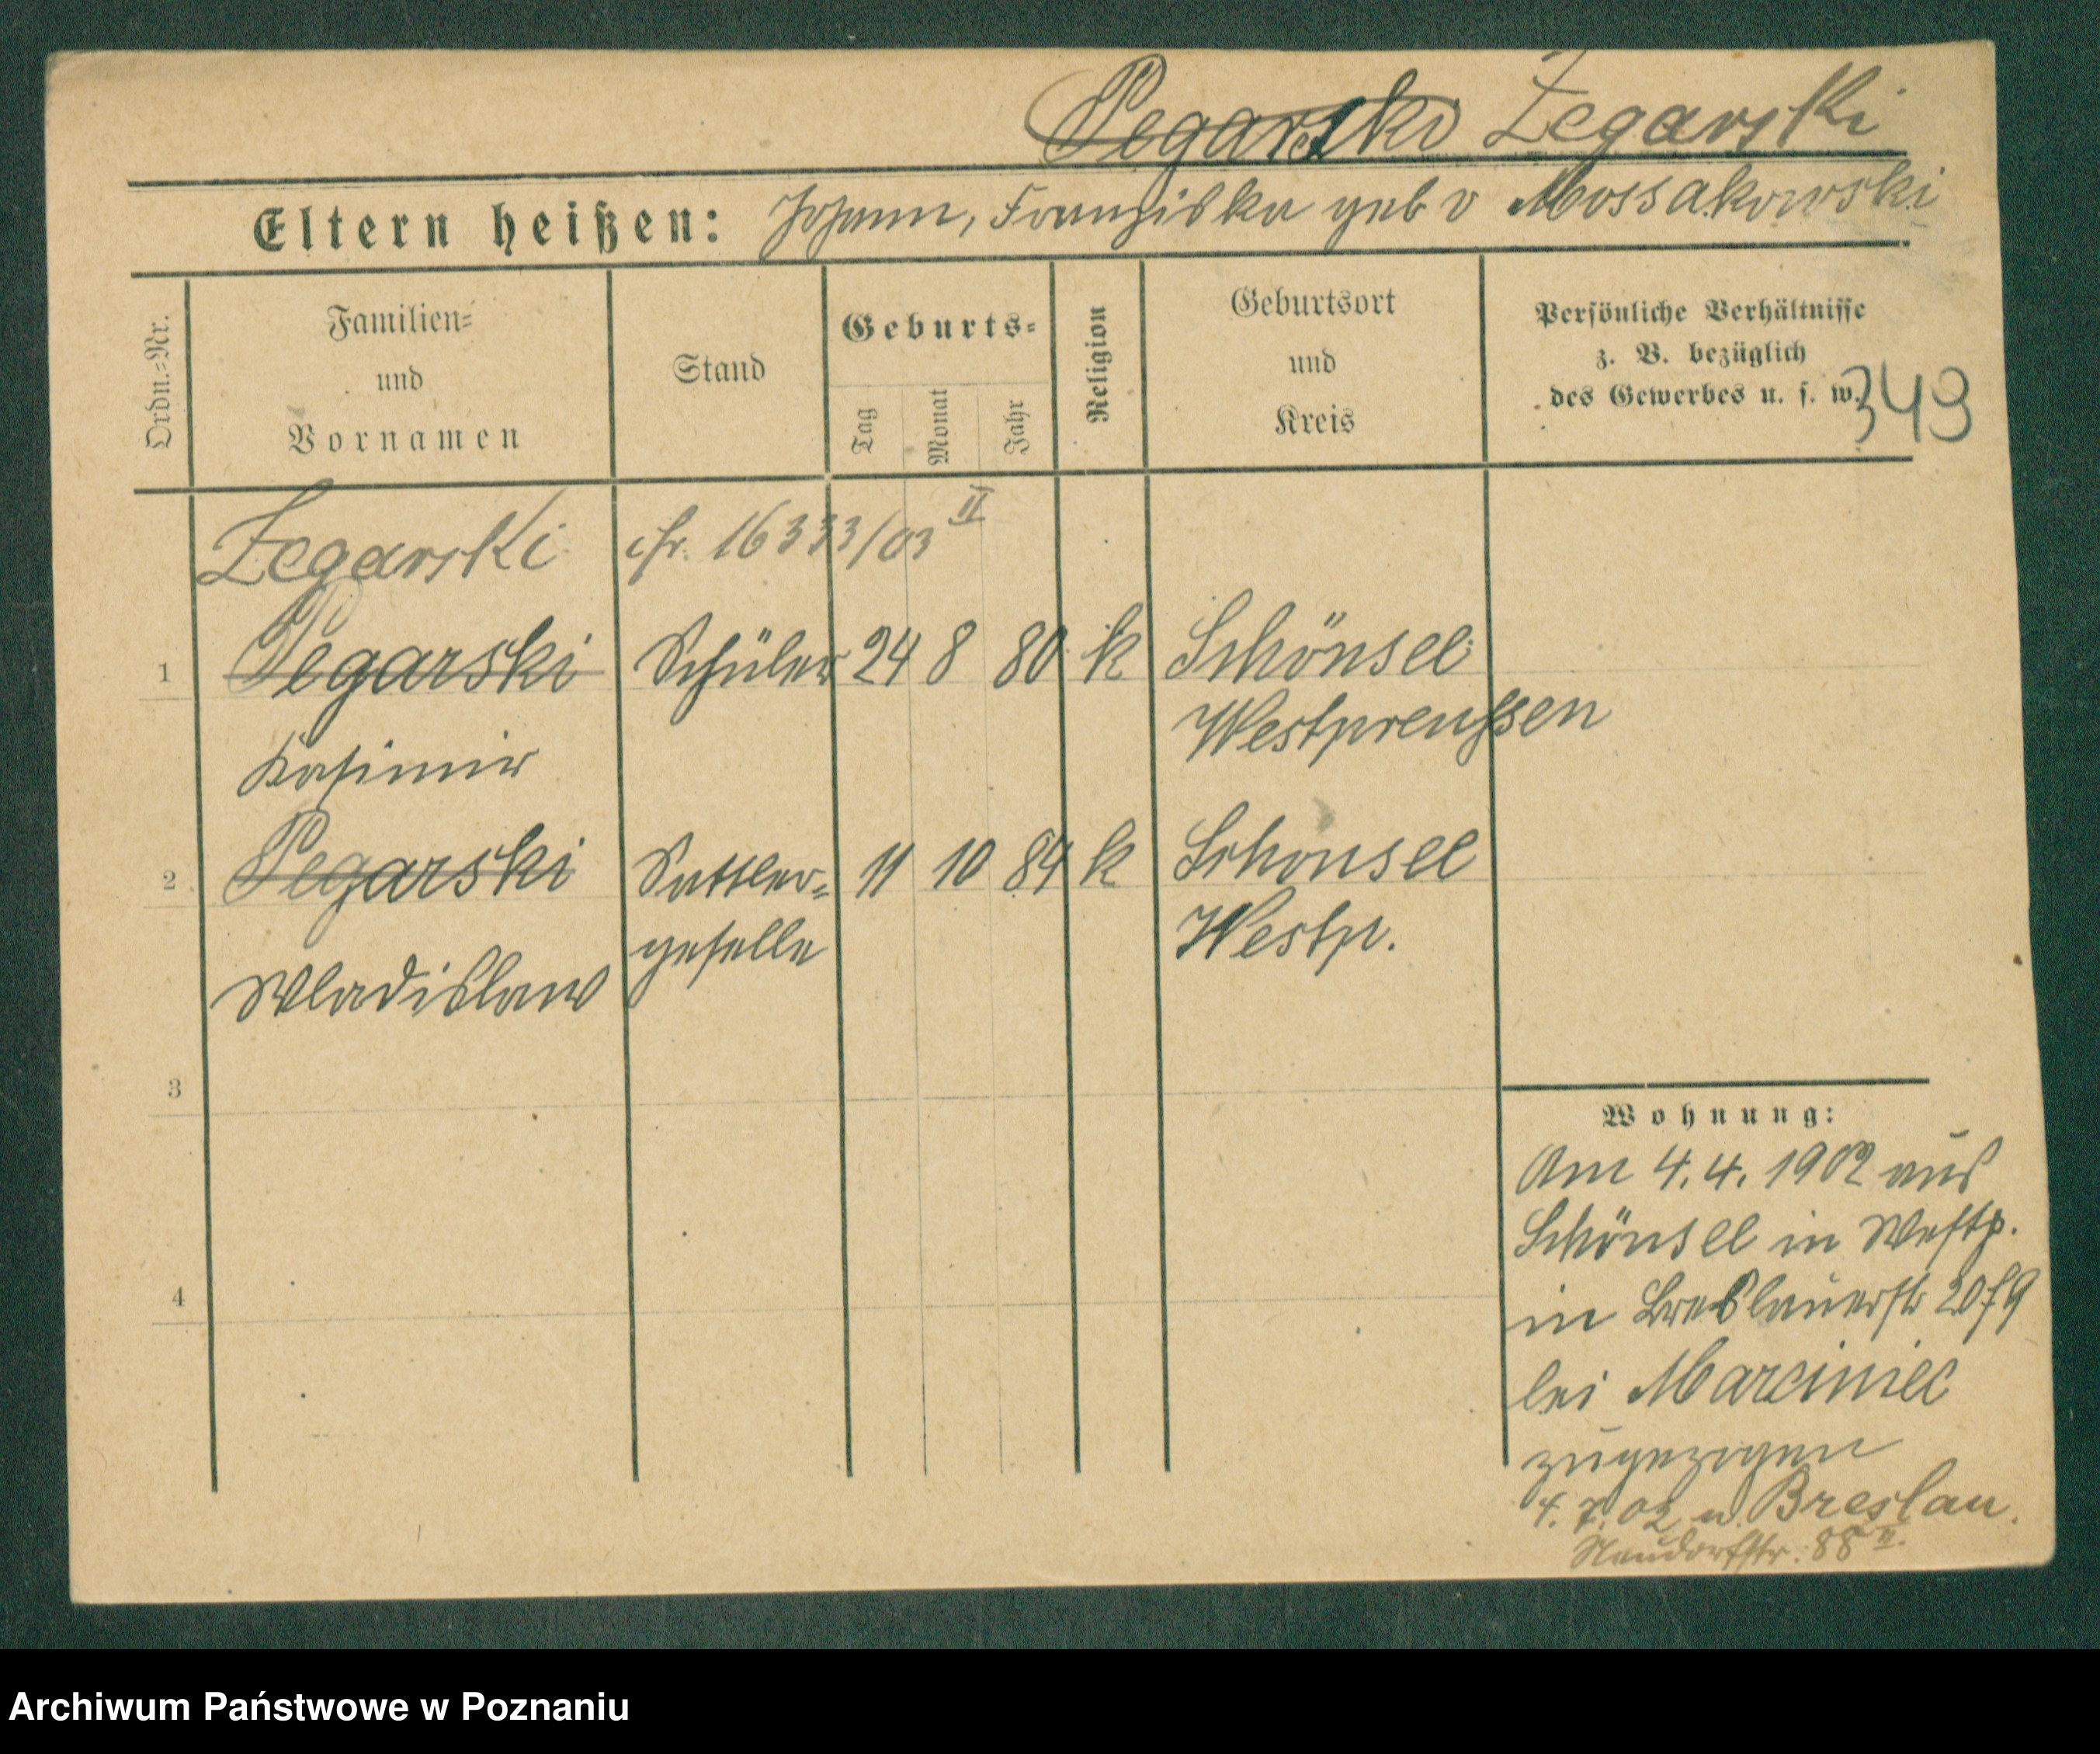 Pegarski Zegarski
Eltern heißen: Johann, Franziska geb v Mossakowski
Ordn.-Nr.
Familien-
und
Vornamen
Stand
Geburts-
Tag
Monat
Jahr
Religion
Geburtsort
und
Kreis
Persönliche Verhältnisse
z. B. bezüglich
des Gewerbes u. s. w.
349
Zegarski cfr. 16333/03 II
1 Pegarski Schüler 24 8 80 k Schönsee
Westpreußen
Kasimir
2 Pegarski Sattler- 11 10 84 k Schonsee
geselle Westpr.
Wladislaw
3
4
Wohnung:
Am 4.4.1902 aus
Schönsee in Westp.
in Breslauerstr
bei Marciniec
zugezogen
4.7.02 n. Breslau.
Neudorfstr. 88 II.
Archiwum Państwowe w Poznaniu